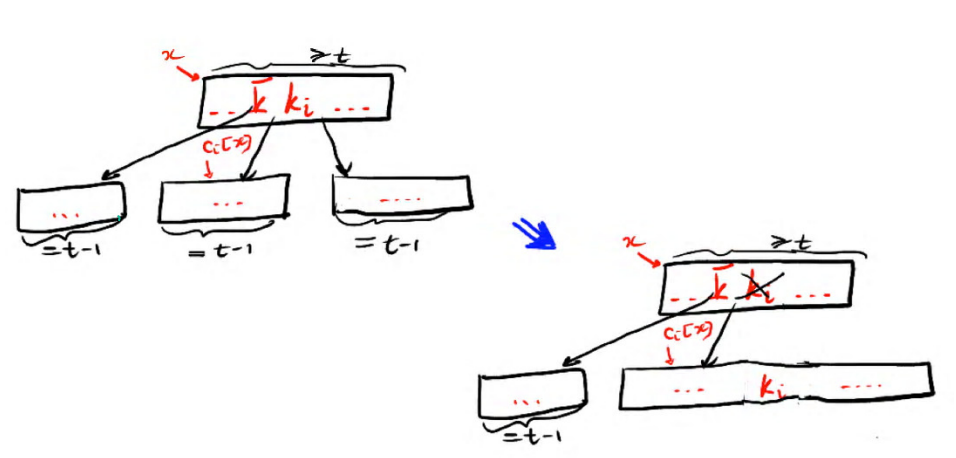 x
≥t
... k̄ kᵢ ...
cᵢ[x]
...
...
....
=t-1
=t-1
=t-1
x
≥t
... k̄ kᵢ ...
cᵢ[x]
...
... kᵢ ....
=t-1